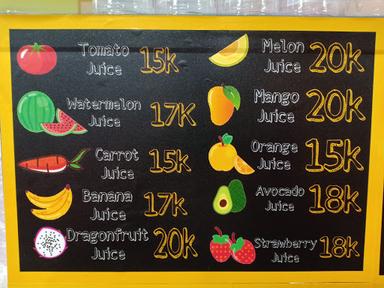 Tomato
Juice 15k
Watermelon
Juice 17k
Carrot
Juice 15k
Banana
Juice 17k
Dragonfruit
Juice 20k
Melon
Juice 20k
Mango
Juice 20k
Orange
Juice 15k
Avocado
Juice 18k
Strawberry
Juice 18k